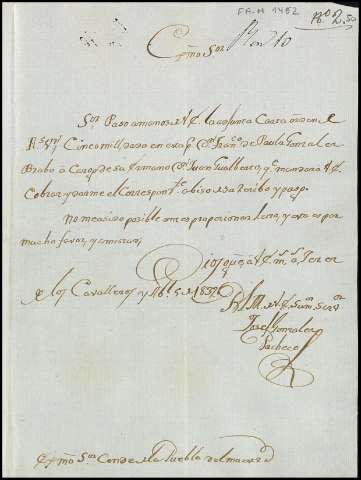 FA.M 1452
Exmo Sor
Sor Paso a manos de V.E. la adjunta Carta orden de
Rs vn Cinco mill dado en esta pr Dn Franco de Paula Gonzalez
Brabo a Cargo de su Ermano Dn Juan Gualberto, qe mandara V.E.
Cobrar, y darme el Correspondte abiso de su recibo y pago.
No me a sido posible antes proporcionar letra, y esta es por
mucho favor, y amistad;
Dios gue a V.E. ms as Jerez
de los Cavalleros y Abl 5 de 1837
B.L.M. de V.E. su mor Servor
José Gonzalez
Pacheco
Exmo Sor Conde de la Puebla del Maestre